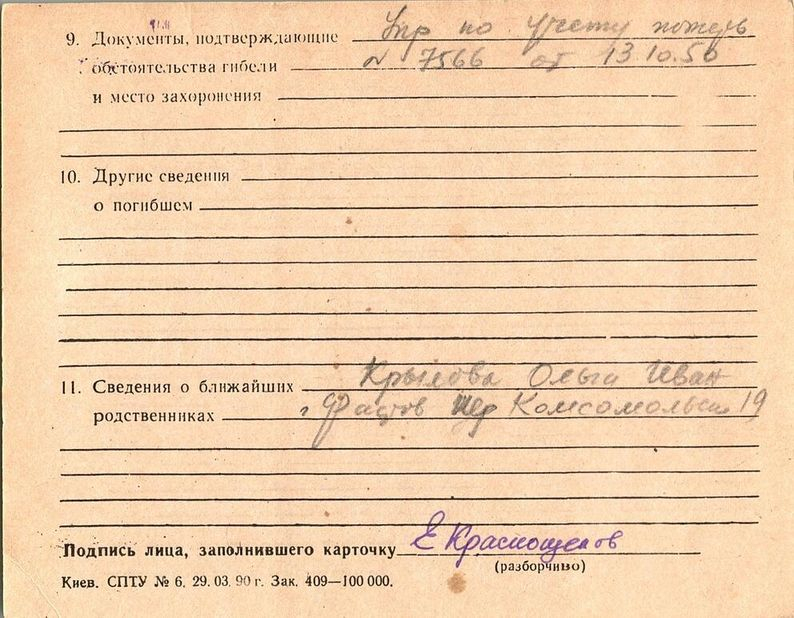 9. Документы, подтверждающие Упр по учету потерь
обстоятельства гибели № 7566 от 13.10.50
и место захоронения
10. Другие сведения
о погибшем
11. Сведения о ближайших Крылова Ольга Иван
родственниках г Фастов пер Комсомольск 19
Подпись лица, заполнившего карточку Е Краснощеков
(разборчиво)
Киев. СПТУ № 6. 29. 03. 90 г. Зак. 409—100 000.